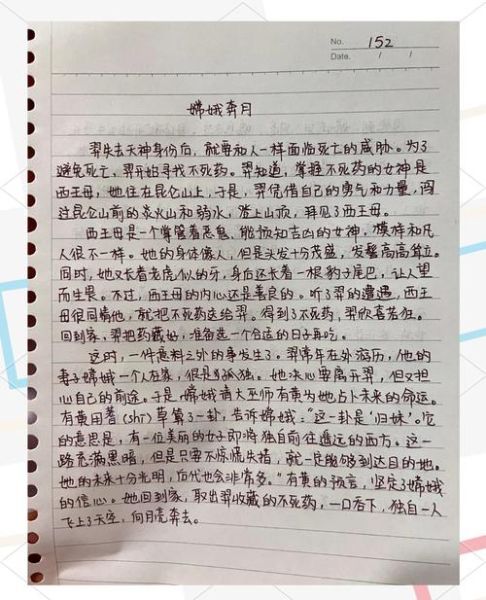 No. 152
Date. / /
嫦娥奔月
羿失去天神身份后，就要和人一样面临死亡的威胁。为了
避免死亡，羿开始寻找不死药。羿知道，掌握不死药的女神是
西王母，她住在昆仑山上，于是，羿凭借自己的勇气和力量，闯
过昆仑山前的炎火山和弱水，登上山顶，拜见了西王母。
西王母是一个掌管着恶鬼、能预知吉凶的女神，模样和凡
人很不一样。她的身体像人，但是头发十分茂盛，发髻高高耸立。
同时，她又长着老虎似的牙，身后还长着一根豹子尾巴，让人望
而生畏。不过，西王母的内心还是善良的。听了羿的遭遇，西王
母很同情他，就把不死药送给羿。得到了不死药，羿欣喜若狂。
回到家，羿把药藏好，准备选一个合适的日子再吃。
这时，一件意料之外的事发生了。羿常年在外游历，他的
妻子嫦娥一个人在家，很是孤独。她决心要离开羿，但又担
心自己的前途。于是，嫦娥请大巫师有黄为她占卜未来的命运。
有黄用蓍(shī)草算了一卦，告诉嫦娥：“这一卦是‘归妹’。它
的意思是，有一位美丽的女子即将独自前往遥远的西方。这一
路充满黑暗，但是只要不惊慌失措，就一定能够到达目的地。
她的未来十分光明，后代也会非常多。”有黄的预言，坚定了嫦娥
的信心。她回到家，取出羿收藏的不死药，一口吞下，独自一人
飞上了天空，向月亮奔去。